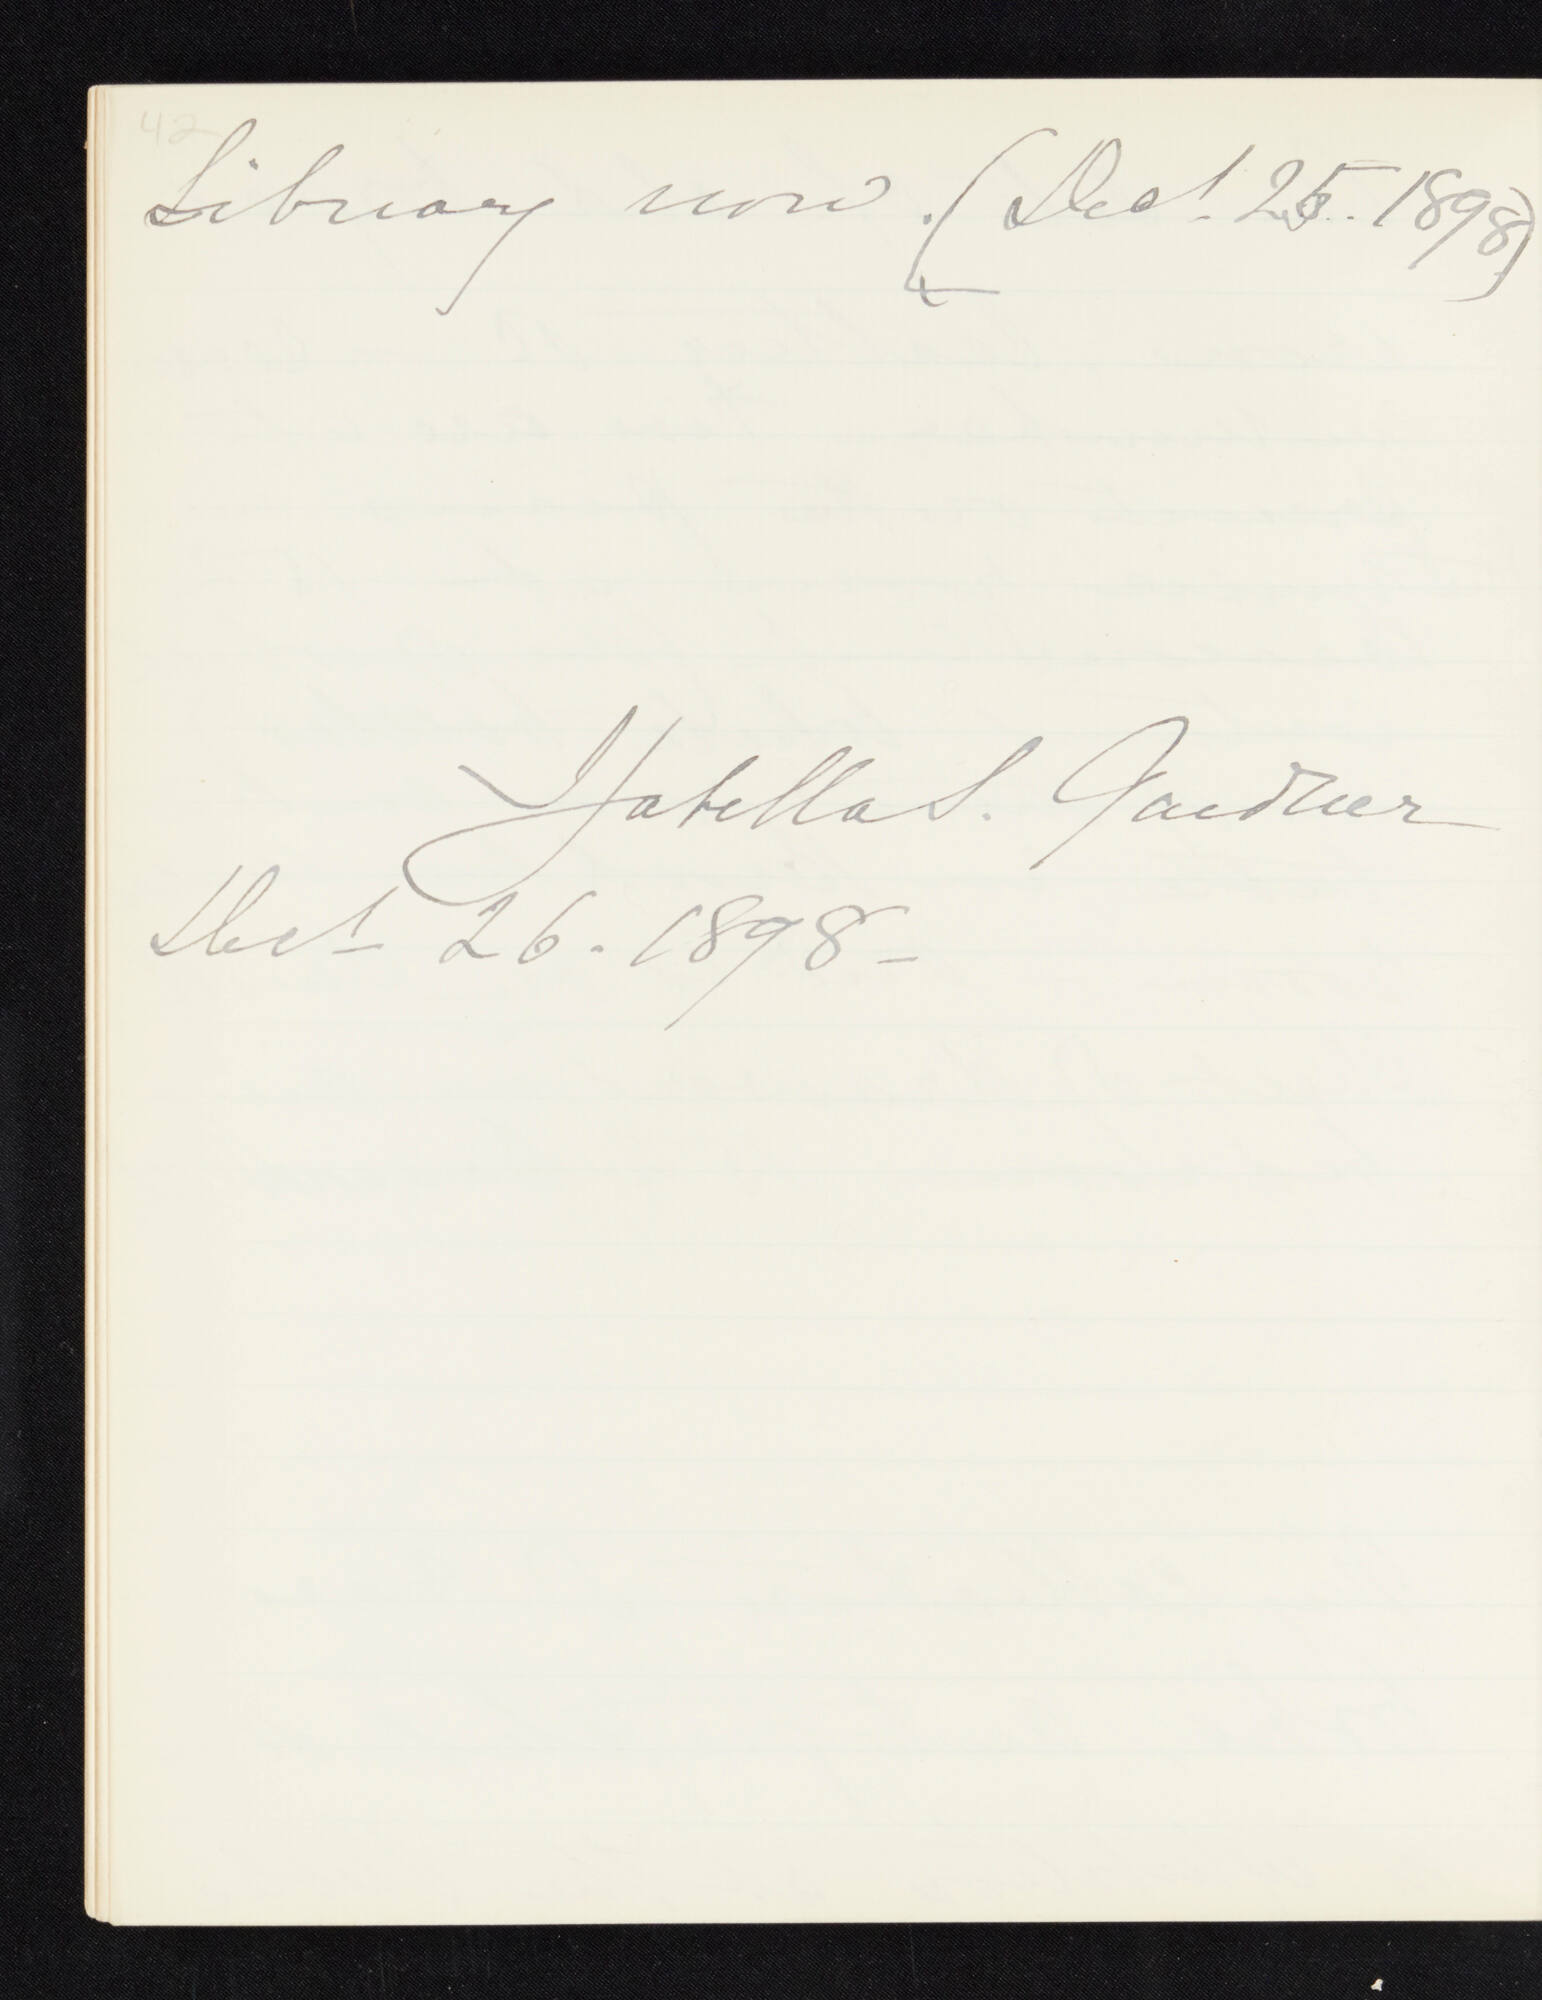 42
Library now. (Dec! 25. 1898)
Isabella S. Gardner
Dec! 26. 1898 -